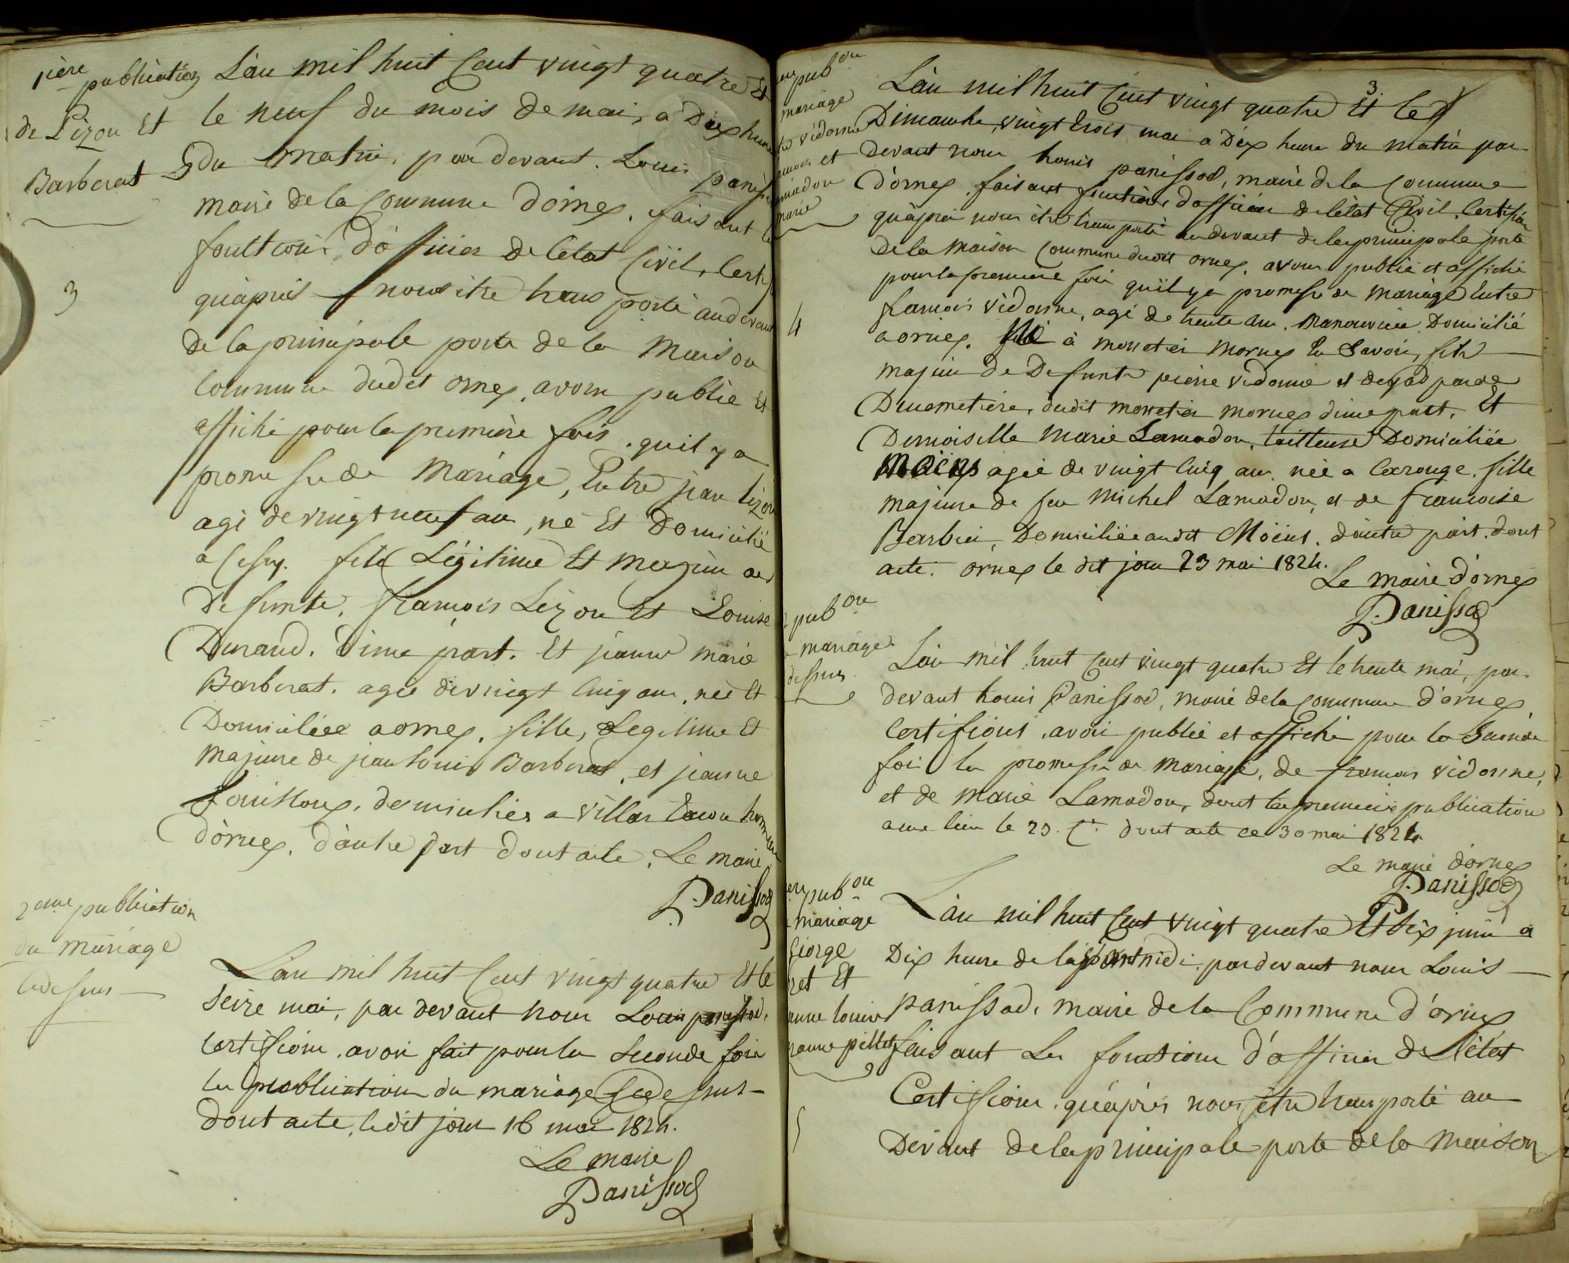 1ière publication
de Lizon Et
Barberat
3
L'an mil huit Cent vingt quatre Et
le neuf du mois de mai, a Dix heures
du matin, par devant. Louis paniss
maire de la Commune d'ornex, faisant
fonctions d'officier de l'état Civil, Certif
qu'après nous être transporté au devant
de la principale porte de la Maison
Commune dudit ornex, avons publié Et
affiché pour la première fois, qu'il y a
promesse de Mariage, Entre jean Lizon
agé de vingt neuf an, né Et Domicilié
a Cessy. fils Légitime Et majeur de
Defunte, françois Lizon Et Louise
Durand. d'une part. Et jeanne marie
Barberat. agée de vingt Cinq ans, née Et
Domiciliée a ornex, fille, Legitime Et
Majeure de jean Louis Barberat, et jeanne
domiciliés a Villar Tacon hameau
d'ornex, d'autre part dont acte. Le maire
Panissod
2eme publication
du mariage
Cidessus
L'an mil huit Cent vingt quatre Et le
Seize mai, par devant nous Louis panissod,
Certifions avoir fait pour la Seconde fois
les publications du mariage Cidessus
dont acte, le dit jour 16 mai 1824.
Le maire
Panissod
pub.on
mariage
vidonne
et
Lamadon
marie
4
3.
L'an mil huit Cent vingt quatre Et le
Dimanche, vingt trois mai a Dix heure du matin par
Devant nous Louis panissod, maire de la Commune
D'ornex, faisant fonctions d'officier de l'état Civil, Certifions
qu'après nous être transporté au devant de la principale porte
De la Maison Commune dudit ornex, avons publié et affiché
pour la première fois qu'il y a promesse de Mariage Entre
françois Vidonne, agé de trente ans. Manouvrier Domicilié
a ornex. Né à monetier Mornex En Savoie, fils
majeur de Defunte pierre vidonne et de
Ducimetière, dudit monetier mornex d'une part, Et
Demoiselle Marie Lamadon, tailleuse Domiciliée
Moëns agée de vingt Cinq ans née a Carouge, fille
majeure de feu Michel Lamadon, et de françoise
Barbier, Domiciliée audit Moëns, d'autre part, dont
acte. ornex le dit jour 23 mai 1824.
Le maire d'ornex
Panissod
pub.on
mariage
dessus
L'an mil huit Cent vingt quatre Et le trente mai, par
devant Louis Panissod, maire de la Commune d'ornex
Certifions avoir publié et affiché pour la Seconde
fois la promesse de Mariage, de françois vidonne,
et de Marie Lamadon, dont la première publication
a eu lieu le 23. Ct. dont acte ce 30 mai 1824
Le maire d'ornex
Panissod
pub.on
mariage
George
et Et
Louise
pillet
5
L'an mil huit Cent vingt quatre Et Six juin a
Dix heure de l'avantmidi par devant nous Louis
panissod, maire de la Commune d'ornex
faisant Les fonctions d'officier de l'état
Certifions, qu'après nous être transporté au
Devant de la principale porte de la Maison